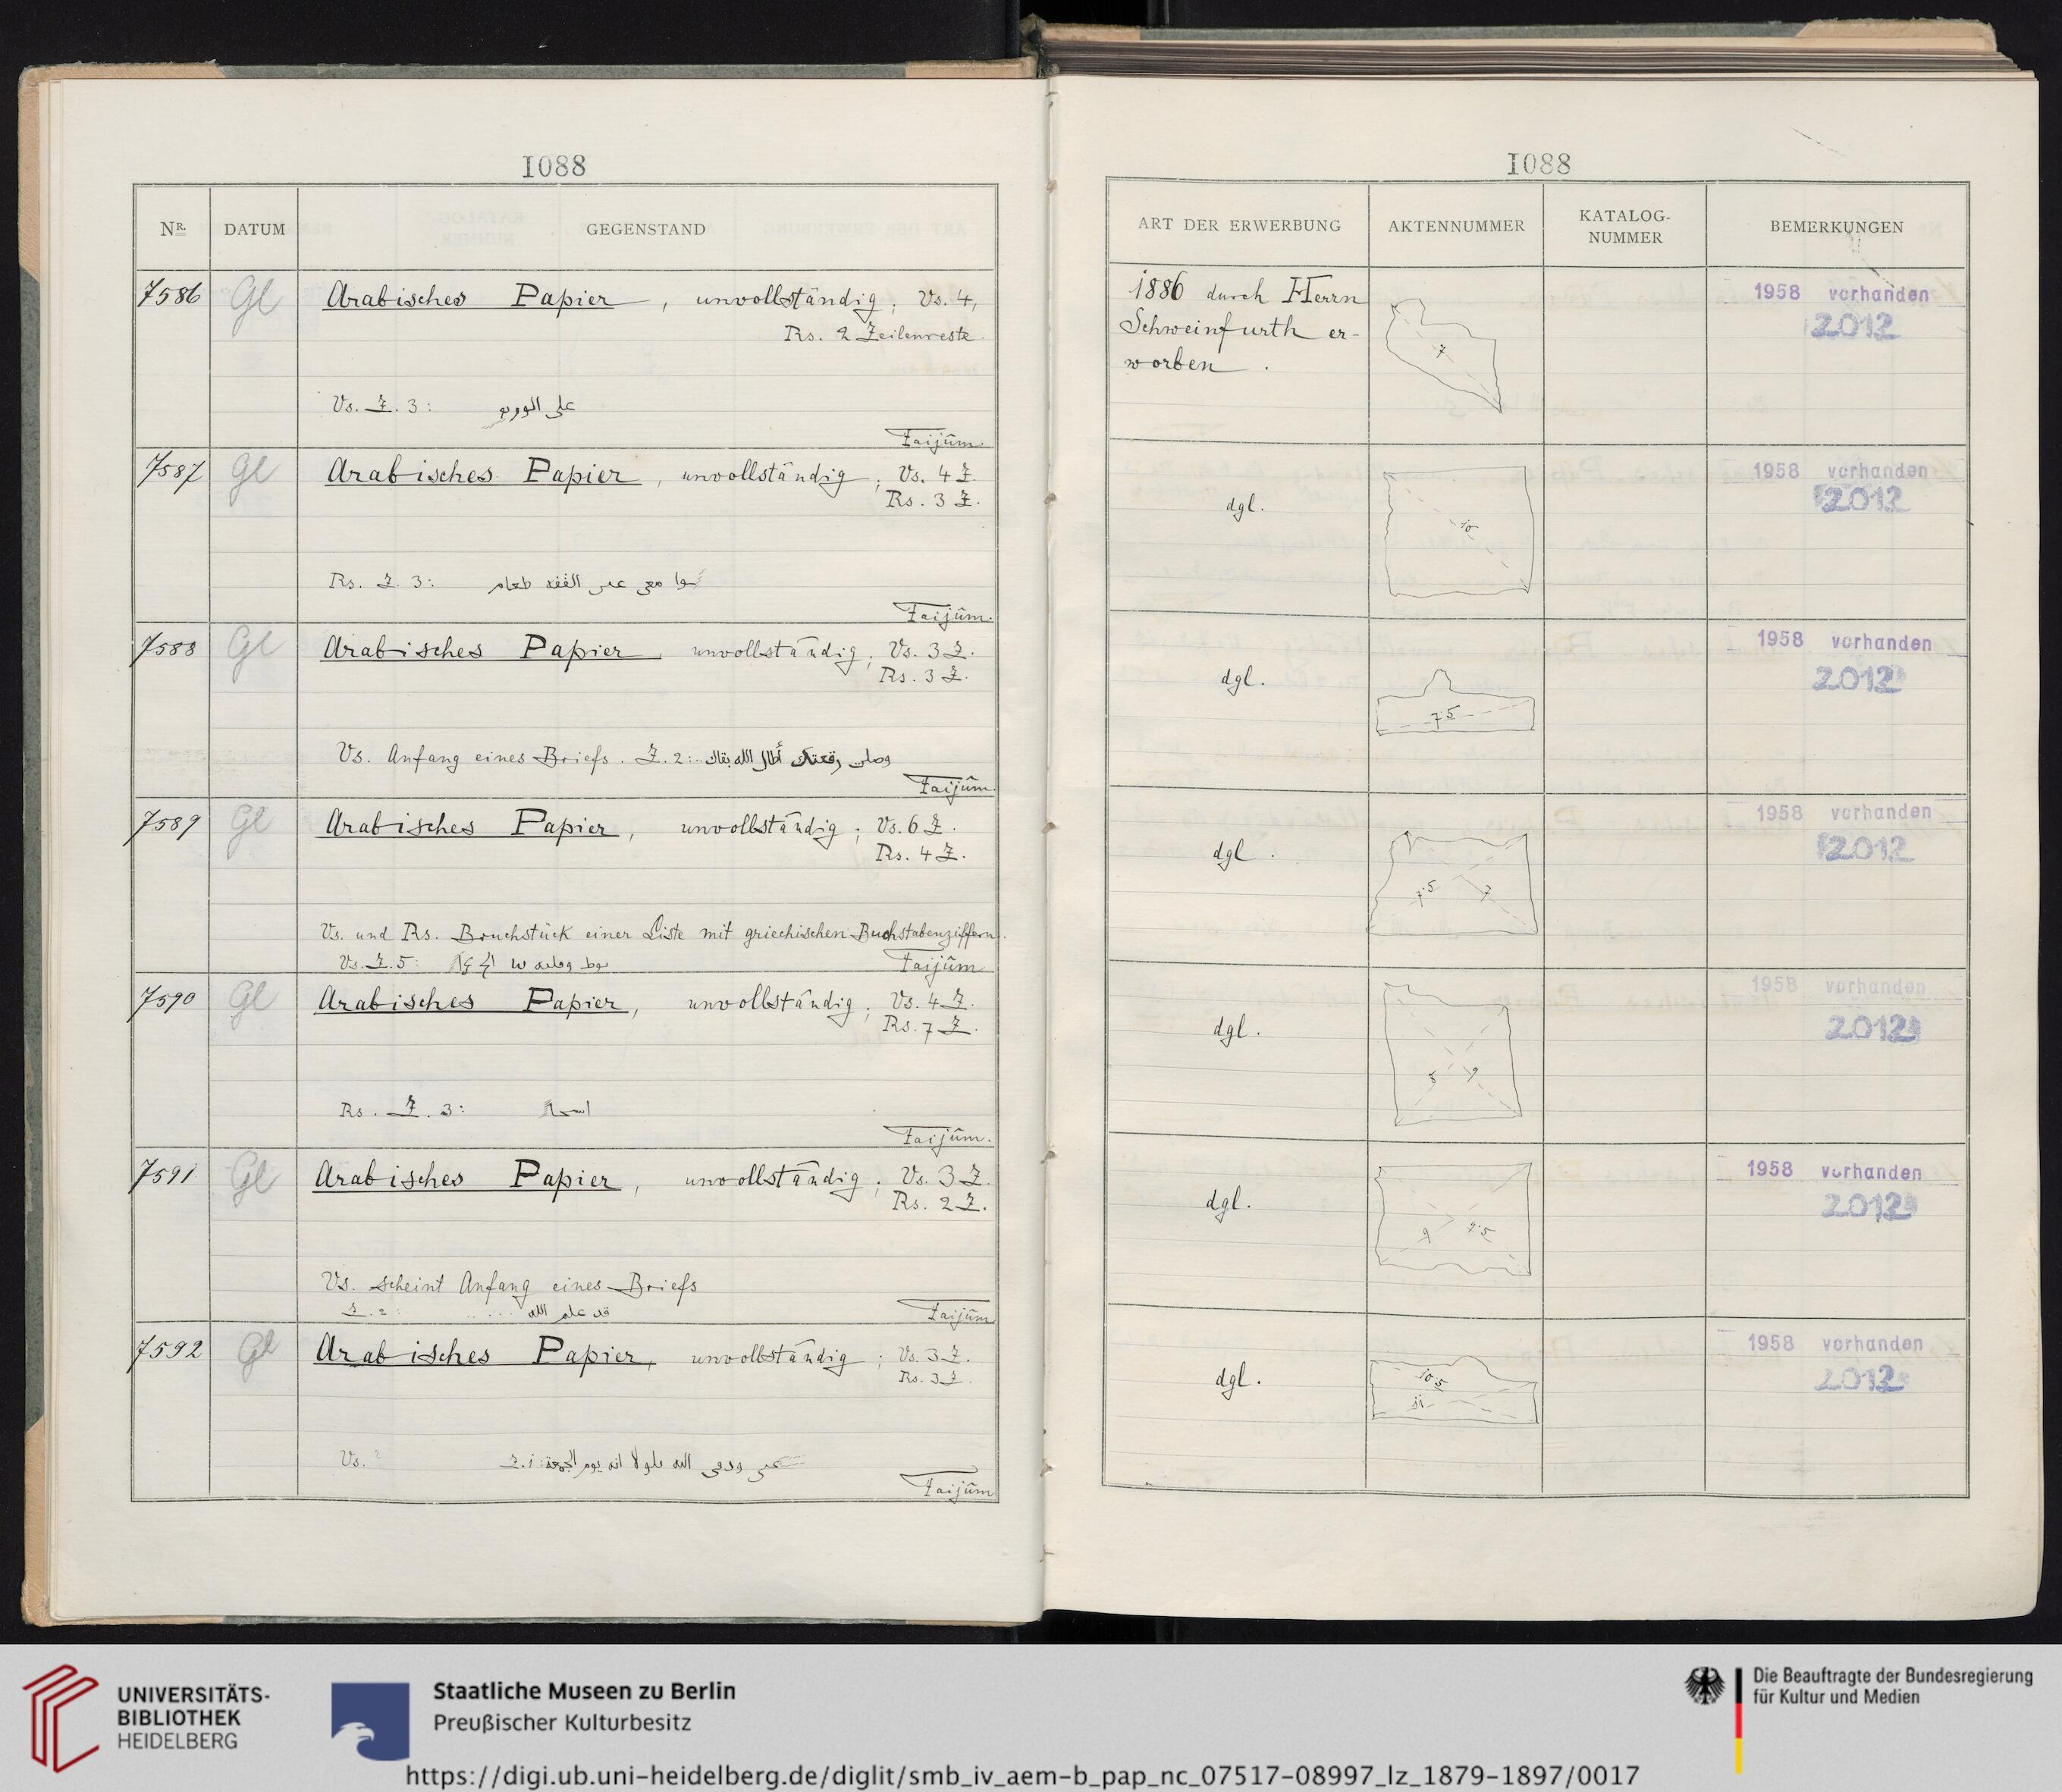 1088
Nr. DATUM GEGENSTAND
7586 Gl Arabisches Papier, unvollständig; Vs. 4,
Rs. 2 Zeilenreste.
Vs. Z. 3: على
Faijûm.
7587 Gl Arabisches Papier, unvollständig; Vs. 4 Z.
Rs. 3 Z.
Rs. Z. 3: معى طعام
Faijûm.
7588 Gl Arabisches Papier, unvollständig; Vs. 3 Z.
Rs. 3 Z.
Vs. Anfang eines Briefs. Z. 2: رقعتك أطال الله بقاك
Faijûm.
7589 Gl Arabisches Papier, unvollständig; Vs. 6 Z.
Rs. 4 Z.
Vs. und Rs. Bruchstück einer Liste mit griechischen Buchstabenziffern.
Vs. Z. 5:
Faijûm
7590 Gl Arabisches Papier, unvollständig; Vs. 4 Z.
Rs. 7 Z.
Rs. Z. 3:
Faijûm.
7591 Gl Arabisches Papier, unvollständig; Vs. 3 Z.
Rs. 2 Z.
Vs. scheint Anfang eines Briefs
Z. 2: قد علم الله
Faijûm
7592 Gl Arabisches Papier, unvollständig; Vs. 3 Z.
Rs. 3 Z.
Vs. Z. 1: الله انه يوم الجمعة
Faijûm
1088
ART DER ERWERBUNG AKTENNUMMER KATALOG-NUMMER BEMERKUNGEN
1886 durch Herrn
Schweinfurth er-
worben.
7
1958 vorhanden
2012
dgl.
10
1958 vorhanden
2012
dgl.
7·5
1958 vorhanden
2012
dgl.
7·5 7
1958 vorhanden
2012
dgl.
8 9
1958 vorhanden
2012
dgl.
9 9·5
1958 vorhanden
2012
dgl.
10·5
11
1958 vorhanden
2012
UNIVERSITÄTS-
BIBLIOTHEK
HEIDELBERG
Staatliche Museen zu Berlin
Preußischer Kulturbesitz
Die Beauftragte der Bundesregierung
für Kultur und Medien
https://digi.ub.uni-heidelberg.de/diglit/smb_iv_aem-b_pap_nc_07517-08997_lz_1879-1897/0017